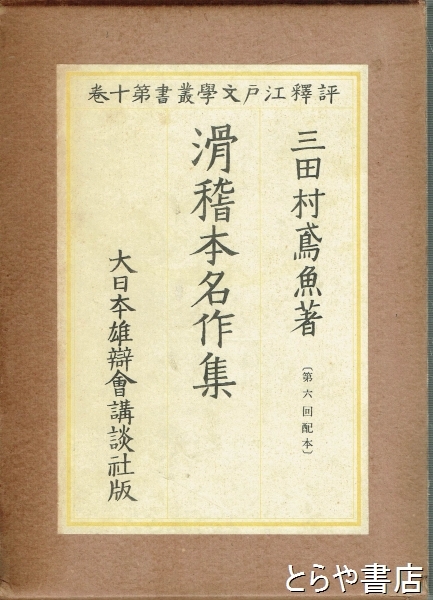 評釋江戸文學叢書第十卷
三田村鳶魚著
〔第六回配本〕
滑稽本名作集
大日本雄辯會講談社版
とらや書店